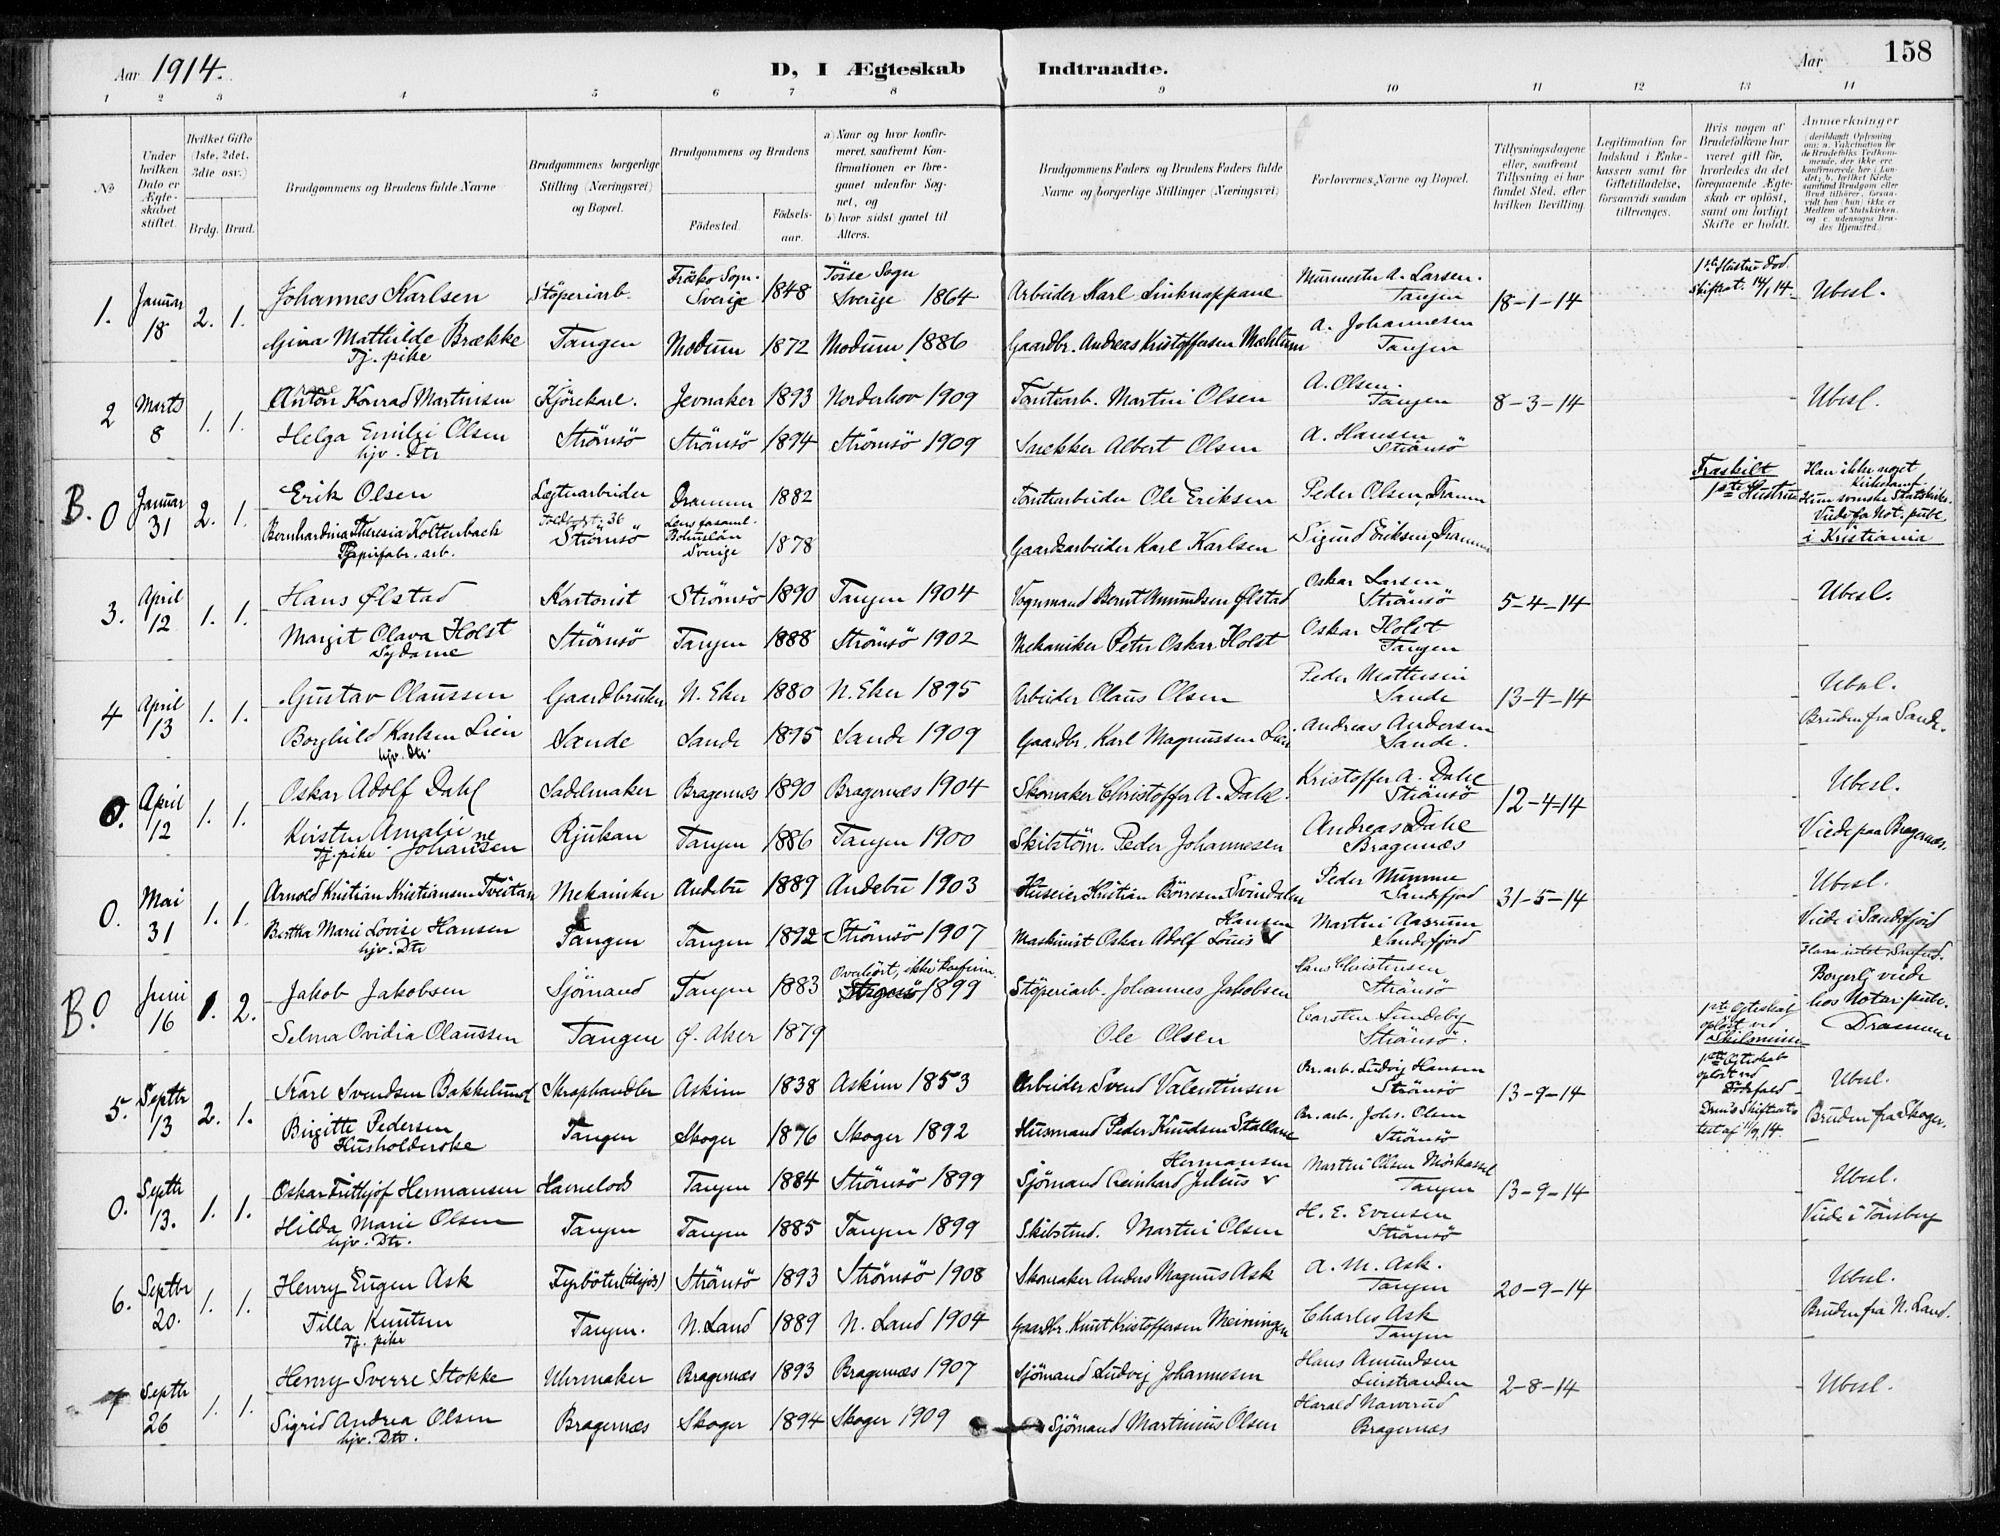 Aar 1914.
D, I Ægteskab Indtraadte.
Aar 158
1 2 3 4 5 6 7 8 9 10 11 12 13 14
No
Under hvilken Dato er Ægteskabet stiftet.
Hvilket Gifte (1ste, 2det, 3die osv.)
Brdg. Brud.
Brudgommens og Brudens fulde Navne
Brudgommens borgerlige Stilling (Næringsvei) og Bopæl.
Brudgommens og Brudens
Fødested. Fødselsaar.
a) Naar og hvor konfirmeret, saafremt Konfirmationen er foregaaet udenfor Sognet, og
b) hvor sidst gaaet til Alters.
Brudgommens Faders og Brudens Faders fulde Navne og borgerlige Stillinger (Næringsvei)
Forlovernes Navne og Bopæl.
Tillysningsdagene eller, saafremt Tillysning ei har fundet Sted, efter hvilken Bevilling.
Legitimation for Indskud i Enkekassen samt for Giftetilladelse, forsaavidt saadan tiltrænges.
Hvis nogen af Brudefolkene har været gift før, hvorledes da det foregaaende Ægteskab er opløst, samt om lovligt Skifte er holdt.
Anmærkninger
1. Januar 18 2. 1. Johannes Karlsen Stöperiarb. Sverige 1848 Tösse Sogn Sverige 1864 Arbeider Karl Murmester A. Larsen. Tangen 18-1-14 1ste Hustru död. Skifteat. 14/1 14. Ubesl.
Gina Mathilde Brække Tj. pike Tangen Modum 1872 Modum 1886 Gaardbr. Andreas Kristoffersen A. Johannesen Tangen
2 Marts 8 1. 1. Konrad Martinsen Kjörekarl. Jevnaker 1893 Norderhov 1909 Tomtearb. Martin Olsen A. Olsen. Tangen 8-3-14 Ubesl.
Helga Emilie Olsen hjv. Dtr Strömsö Strömsö 1894 Strömsö 1909 Snekker Albert Olsen A. Hansen Strömsö
B. 0 Januar 31 2. 1. Erik Olsen Drammen 1882 Tomtearbeider Ole Eriksen Peder Olsen, Dramm Fraskilt 1ste Hustru
Bernhardina Theresia Koltenbach Papirfabr. arb. Strömsö Bohuslän Sverige 1878 Gaardsarbeider Karl Karlsen Sigurd Eriksen, Dramm Viede fa Not. publ. i Kristiania
3. April 12 1. 1. Hans Ølstad Kontorist Strömsö 1890 Tangen 1904 Vognmand Bernt Amundsen Ølstad Oskar Larsen Strömsö 5-4-14 Ubesl.
Margit Olava Holst Sydame Strömsö Tangen 1888 Strömsö 1902 Mekaniker Peter Oskar Holst Oskar Holst Tangen
4 April 13 1. 1. Gustav Olaussen Gaardbruker N. Eker 1880 N. Eker 1895 Arbeider Olaus Olsen Peder Mathisen Sande 13-4-14 Ubesl.
Borghild Karlsen Lien hjv. Dtr Sande Sande 1895 Sande 1909 Gaardbr. Karl Magnussen Lien Andreas Andersen Sande. Bruden fra Sande.
0. April 12 1. 1. Oskar Adolf Dahl Sadelmaker Bragernæs 1890 Bragernæs 1904 Skomaker Christoffer A. Dahl. Kristoffer A. Dahl Strömsö 12-4-14 Ubesl.
Kirsten Amalie Johannesen Tj. pike Rjukan Tangen 1886 Tangen 1900 Skibstöm. Peder Johannesen Andreas Dahl Bragernæs Viede paa Bragernæs.
0. Mai 31 1. 1. Arnold Kristian Kristiansen Tveitan Mekaniker Andebu 1889 Andebu 1903 Huseier Kristian Börresen Svindalen Peder Mumme Sandefjord 31-5-14 Ubesl.
Bertha Marie Lovise Hansen hjv. Dtr Tangen Tangen 1892 Strömsö 1907 Maskinist Oskar Adolf Louis Hansen Martin Aasrum Sandefjord Viede i Sandefjord
B. 0 Juni 16 1. 2. Jakob Jakobsen Sjömand Tangen 1883 Overhört, ikke konfirm. 1899 Stöperiarb. Johannes Jakobsen Hans Christensen Strömsö Borgerlig viede hos Notar. publ. Drammen
Selma Ovidia Olaussen Tangen Ø. Aker 1879 Ole Olsen Carsten Sundeby Strömsö. 1ste Egteskab oplöst ved Skilsmisse
5. Septbr 13 2. 1. Karl Svendsen Bakkelund Skraphandler Askim 1838 Askim 1853 Arbeider Svend Valentinsen Br. arb. Ludvig Hansen Strömsö 13-9-14 1ste Egteskab oplöst ved Dödsfald Ubesl.
Birgitte Pedersen Husholderske Tangen Skoger 1876 Skoger 1892 Husmand Peder Knudsen Br. arb. Johs. Olsen Strömsö Skifteattest af 11/9 14. Bruden fra Skoger.
0. Septbr 13. 1. 1. Oskar Frithjof Hermansen Havnelods Tangen 1884 Strömsö 1899 Sjömand Reinhard Julius Hermansen Martin Olsen Tangen 13-9-14 Ubesl.
Hilda Marie Olsen hjv. Dtr. Tangen Tangen 1885 Tangen 1899 Skibstmd. Martin Olsen H. E. Evensen Strömsö Viede i Tönsberg
6. Septbr 20. 1. 1. Henry Eugen Ask Fyrböter (tilsjös) Strömsö 1893 Strömsö 1908 Skomaker Anders Magnus Ask A. M. Ask. Tangen 20-9-14 Ubesl.
Tilla Knutsen Tj. pike Tangen. N. Land 1889 N. Land 1904 Gaardbr. Knut Kristoffersen Meiningen Charles Ask Tangen Bruden fra N. Land.
7 Septbr 26 1. 1. Henry Sverre Stokke Uhrmaker Bragernæs 1893 Bragernæs 1907 Sjömand Ludvig Johannesen Hans Amundsen Lierstranden 2-8-14 Ubesl.
Sigrid Andrea Olsen hjv. Dtr. Bragernæs Skoger 1894 Skoger 1909 Sjömand Martinius Olsen Harald Narverud Bragernæs